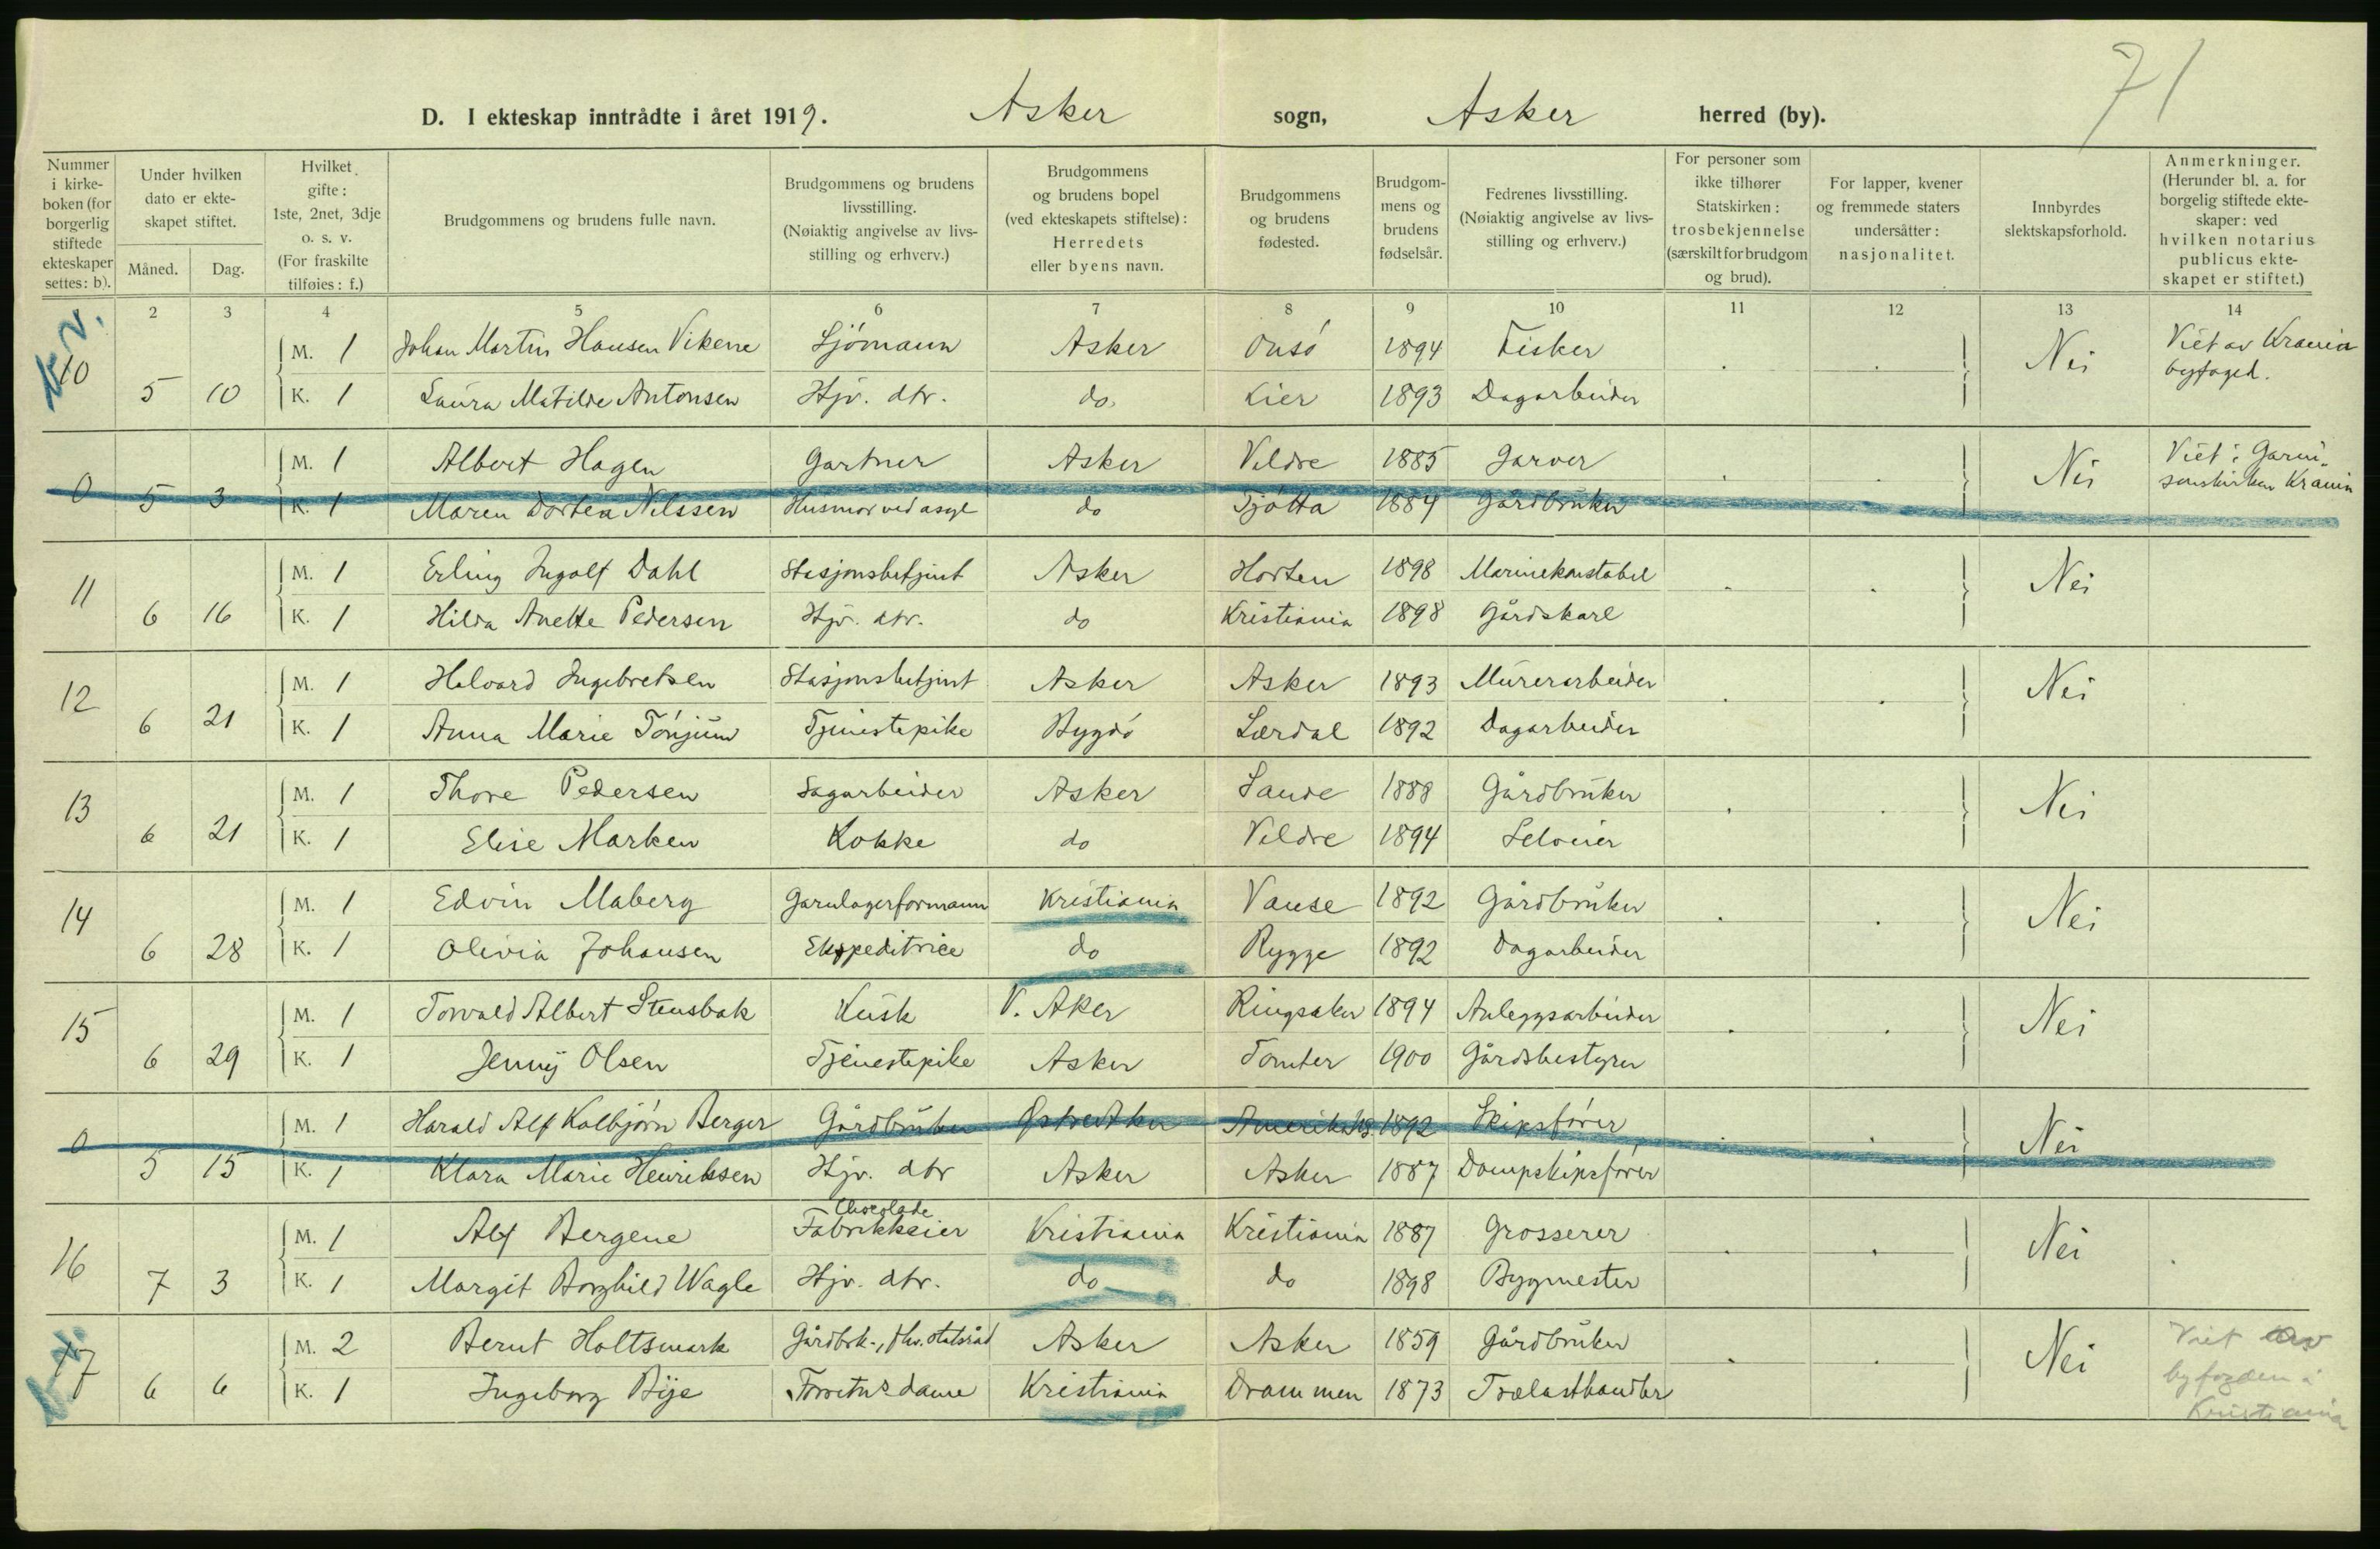 71
D. I ekteskap inntrådte i året 1919. Asker sogn, Asker herred (by).
Nummer i kirkeboken (for borgerlig stiftede ekteskaper settes: b).
Under hvilken dato er ekteskapet stiftet.
Måned. Dag.
Hvilket gifte: 1ste, 2net, 3dje o. s. v. (For fraskilte tilføies: f.)
Brudgommens og brudens fulle navn.
Brudgommens og brudens livsstilling. (Nøiaktig angivelse av livsstilling og erhverv.)
Brudgommens og brudens bopel (ved ekteskapets stiftelse): Herredets eller byens navn.
Brudgommens og brudens fødested.
Brudgommens og brudens fødselsår.
Fedrenes livsstilling. (Nøiaktig angivelse av livsstilling og erhverv.)
For personer som ikke tilhører Statskirken: trosbekjennelse (særskilt for brudgom og brud).
For lapper, kvener og fremmede staters undersåtter: nasjonalitet.
Innbyrdes slektskapsforhold.
Anmerkninger. (Herunder bl. a. for borgelig stiftede ekteskaper: ved hvilken notarius publicus ekteskapet er stiftet.)
2 3 4 5 6 7 8 9 10 11 12 13 14
10 M. 1 Johan Martin Hansen Vikene Sjómann Asker Onsó 1894 Fisker Nei Viet av Krania byfoged.
5 10 K. 1 Laura Matilde Antonsen Hjv. dtr. do. Lier 1893 Dagarbeider
0 M. 1 Albert Hagen Gartner Asker Veldre 1885 Garver Nei Viet i Garnisonskirken Krania
5 3 K. 1 Maren Dortea Nilssen Husmor ved asyl do Tjótta 1884 Gårdbruker
11 M. 1 Erling Ingolf Dahl Stasjonsbetjent Asker Horten 1898 Marinekonstabel Nei
6 16 K. 1 Hilda Anette Pedersen Hjv. dtr. do Kristiania 1898 Gårdskarl
12 M. 1 Halvard Ingebretsen Stasjonsbetjent Asker Asker 1893 Murerarbeider Nei
6 21 K. 1 Anna Marie Tónjum Tjenestepike Bygdó Lærdal 1892 Dagarbeider
13 M. 1 Thore Pedersen Sagarbeider Asker Sande 1888 Gårdbruker Nei
6 21 K. 1 Elise Marken Kokke do Veldre 1894 Selveier
14 M. 1 Edvin Maberg Garnlagerformann Kristiania Vanse 1892 Gårdbruker Nei
6 28 K. 1 Olivia Johansen Ekspeditrice do Rygge 1892 Dagarbeider
15 M. 1 Torvald Albert Stensbak Kusk V. Aker Ringsaker 1894 Anleggsarbeider Nei
6 29 K. 1 Jenny Olsen Tjenestepike Asker Tomter 1900 Gårdsbestyrer
0 M. 1 Harald Alf Kolbjórn Berger Gårdbruker Østre Aker Amerika 1892 Skipsfórer Nei
5 15 K. 1 Klara Marie Henriksen Hjv. dtr Asker Asker 1887 Dampskipsfórer
16 M. 1 Alf Bergene Chocolade Fabrikkeier Kristiania Kristiania 1887 Grosserer Nei
7 3 K. 1 Margit Borghild Wagle Hjv. dtr. do do 1898 Bygmester
17 M. 2 Bernt Holtsmark Gårdbrk., fhv. statsråd Asker Asker 1859 Gårdbruker Nei Viet av byfogden i Kristiania
6 6 K. 1 Ingeborg Bije Forretn.dame Kristiania Drammen 1873 Trælasthandler